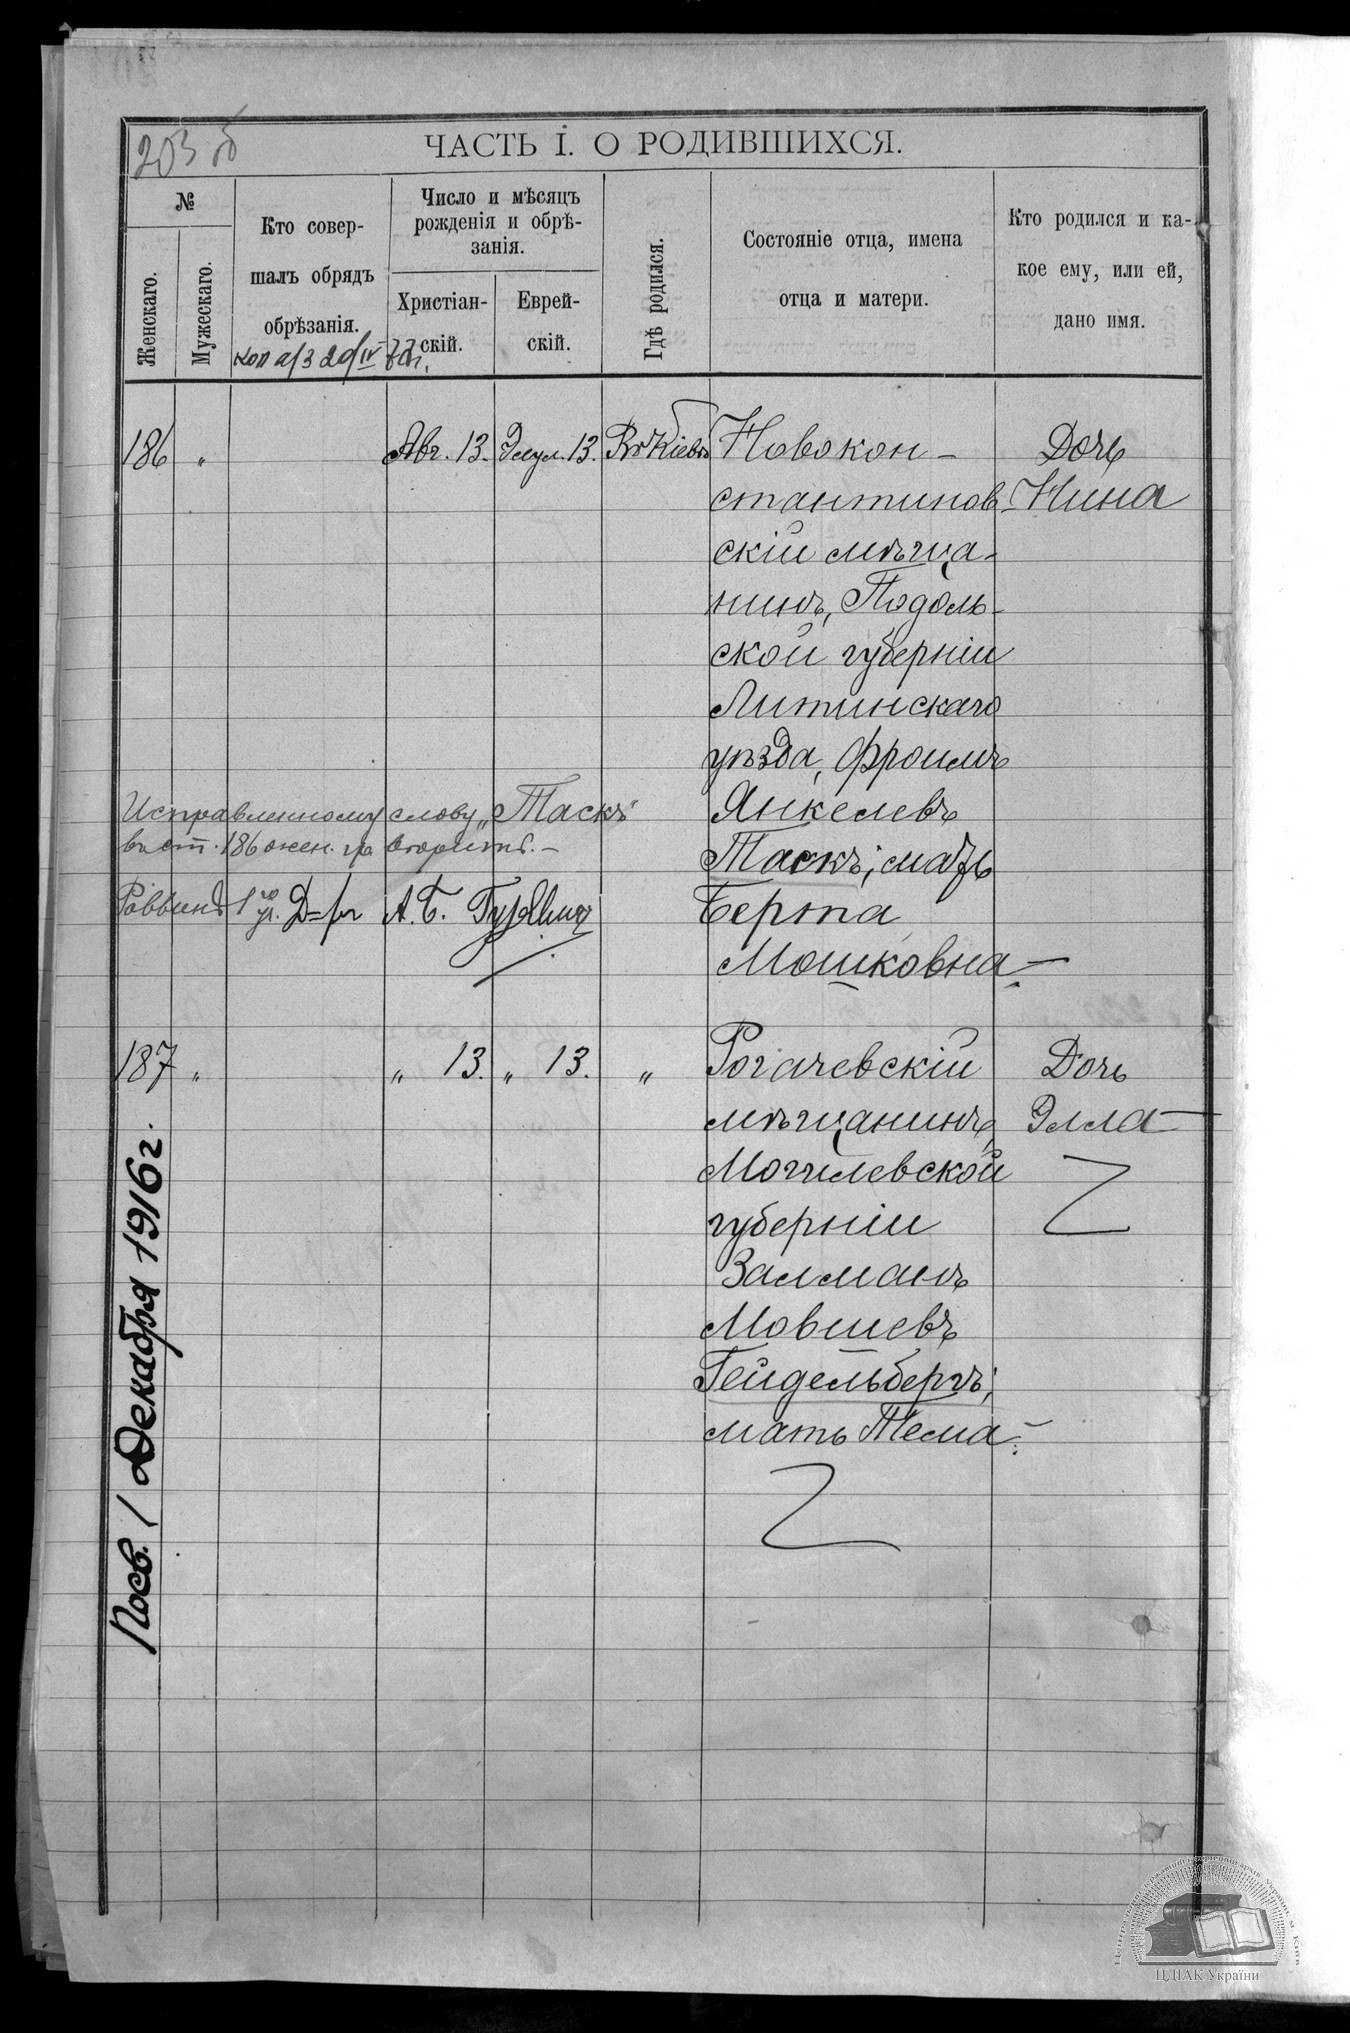 203 об
ЧАСТЬ I. О РОДИВШИХСЯ.
№
Женскаго.
Мужескаго.
Кто совер-
шалъ обрядъ
обрѣзанія.
Число и мѣсяцъ
рожденія и обрѣ-
занія.
Христіан-
скій.
Еврей-
скій.
Гдѣ родился.
Состояніе отца, имена
отца и матери.
Кто родился и ка-
кое ему, или ей,
дано имя.
186 „ Авг. 13. Элул. 13. Въ Кіевѣ Новокон- Дочь
стантинов- Нина
скій мѣща-
нинъ, Подоль-
ской губерніи
Литинскаго
уѣзда, Фроимъ
Янкелевъ
Таскъ; мать
Берта
Мошковна.
Исправленному слову „Таскъ"
въ ст. 186 жен. гр. вѣрить. –
Раввинъ А. Б. Гуревич
187 „ „ 13. „ 13. „ Рогачевскій Дочь
мѣщанинъ, Элла
Могилевской
губерніи
Залманъ
Мовшевъ
Гейдельбергъ;
мать Тема.
Посв. 1 Декабря 1916 г.
ЦДІАК України